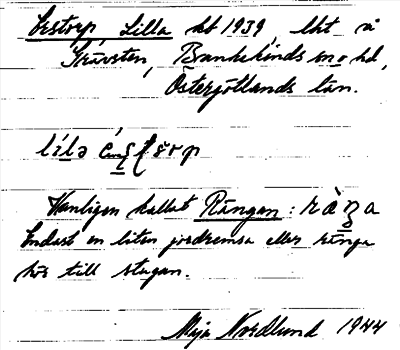 Erstorp, Lilla hb 1939, lht å
Skärsten, Brunkekinds sn o hd,
Östergötlands län.
lílə
Vanligen kallat Rängan: ràŋa
Endast en liten jordremsa eller ränga
hör till stugan.
Maja Nordlund 1944